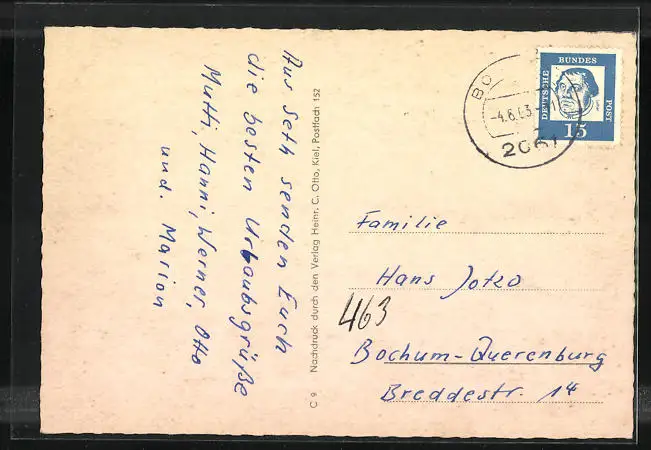 Aus Seth senden Euch
die besten Urlaubsgrüße
Mutti, Hanni, Werner, Otto
und. Marion
C 9 Nachdruck durch den Verlag Heinr. C. Otto, Kiel, Postfach 152
BO
-4.6.63
2061
DEUTSCHE BUNDES POST
15
Familie
Hans Jotzo
463
Bochum-Querenburg
Breddestr. 14